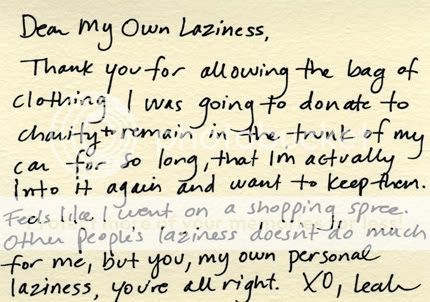 Dear My Own Laziness,
Thank you for allowing the bag of
clothing I was going to donate to
charity to remain in the trunk of my
car for so long, that I'm actually
into it again and want to keep them.
Feels like I went on a shopping spree.
Other people's laziness doesn't do much
for me, but you, my own personal
laziness, you're all right. XO, Leah